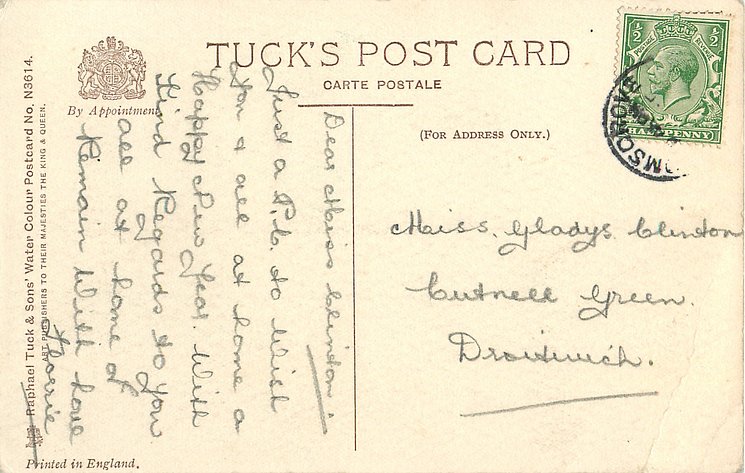 TUCK'S POST CARD
CARTE POSTALE
By Appointment
(FOR ADDRESS ONLY.)
Raphael Tuck & Sons' Water Colour Postcard No. N3614.
ART PUBLISHERS TO THEIR MAJESTIES THE KING & QUEEN.
Printed in England.
½ ½
POSTAGE REVENUE
HALFPENNY
OMSGROVE
Miss. Gladys Clinton
Cutnell Green.
Droitwich.
Dear Miss Clinton.
Just a P.C. to Wish
You & all at home a
Happy New Year. With
Kind Regards to You
all at home &
Remain With love
Florrie